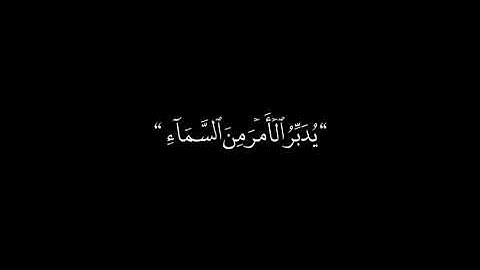 “يُدَبِّرُ ٱلۡأَمۡرَ مِنَ ٱلسَّمَآءِ“